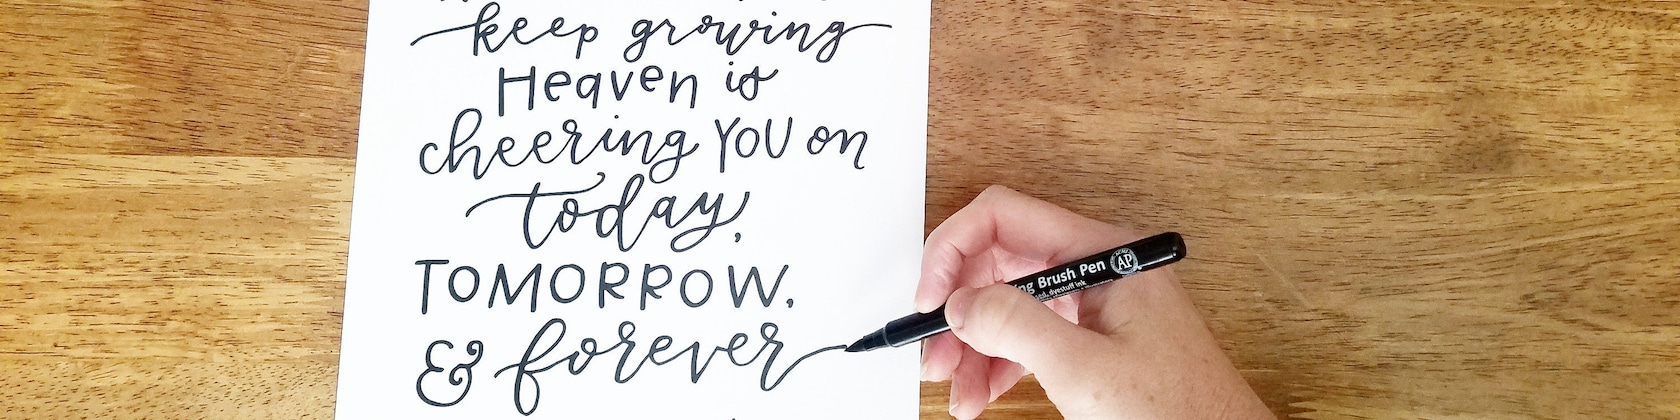 keep growing
Heaven is
cheering YOU on
today,
TOMORROW,
& forever
Brush Pen
AP
dyestuff ink